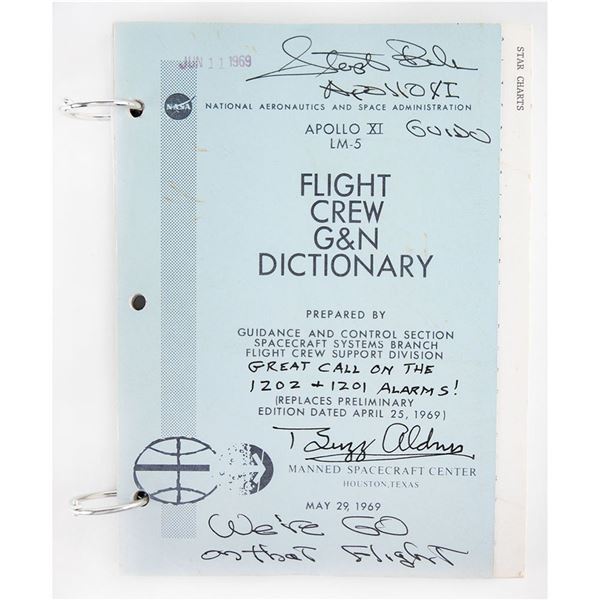 JUN 11 1969
Steph Bale
APOLLO XI
NASA
NATIONAL AERONAUTICS AND SPACE ADMINISTRATION
GUIDO
APOLLO XI
LM-5
STAR CHARTS
FLIGHT
CREW
G&N
DICTIONARY
PREPARED BY
GUIDANCE AND CONTROL SECTION
SPACECRAFT SYSTEMS BRANCH
FLIGHT CREW SUPPORT DIVISION
GREAT CALL ON THE
1202 + 1201 ALARMS!
(REPLACES PRELIMINARY
EDITION DATED APRIL 25, 1969)
Buzz Aldrin
MANNED SPACECRAFT CENTER
HOUSTON, TEXAS
MAY 29, 1969
We're GO
on that Flight